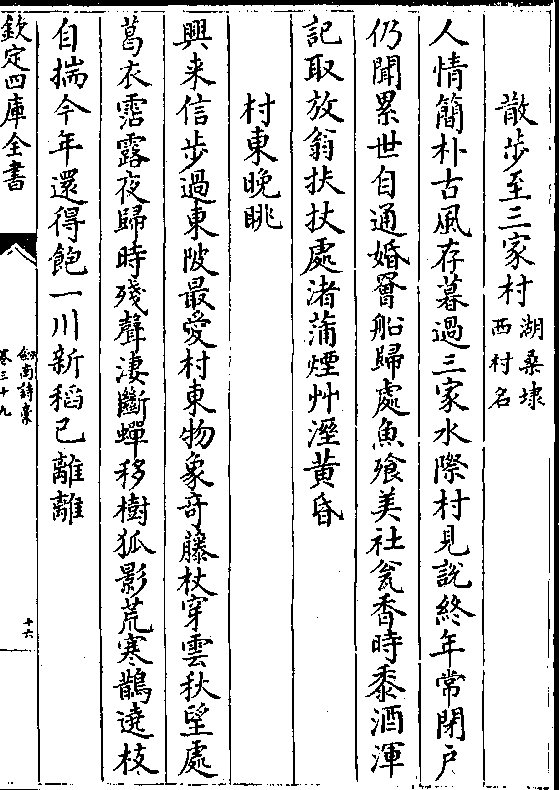 散步至三家村湖桑埭西村名
人情簡朴古風存暮過三家水際村見說終年常閉戶
仍聞累世自通婚罾船歸處魚飱美社瓮香時黍酒渾
記取放翁扶杖處渚蒲煙艸溼黃昏
村東晚眺
興来信步過東陂最愛村東物象竒藤杖穿雲秋望處
葛衣霑露夜歸時殘聲淒斷蟬移樹狐影荒寒鵲遶枝
自揣今年還得飽一川新稻已離離
欽定四庫全書
劍南詩稾
卷三十九
十六